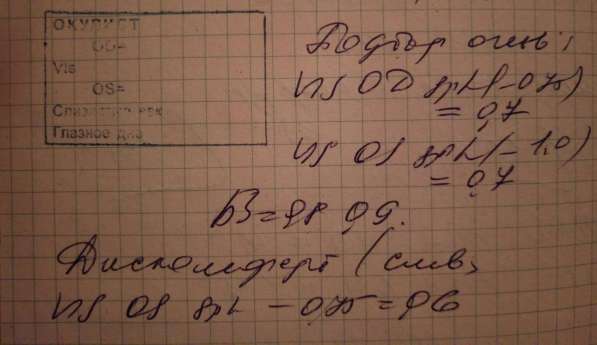 ОКУЛИСТ
OD=
Vis
OS=
Глазное дно
Подбор очков:
Vis OD sph (-0,75)
= 0,7
Vis OS sph (-1,0)
= 0,7
Дискомфорт (слева
Vis OS sph -0,75 = 0,6